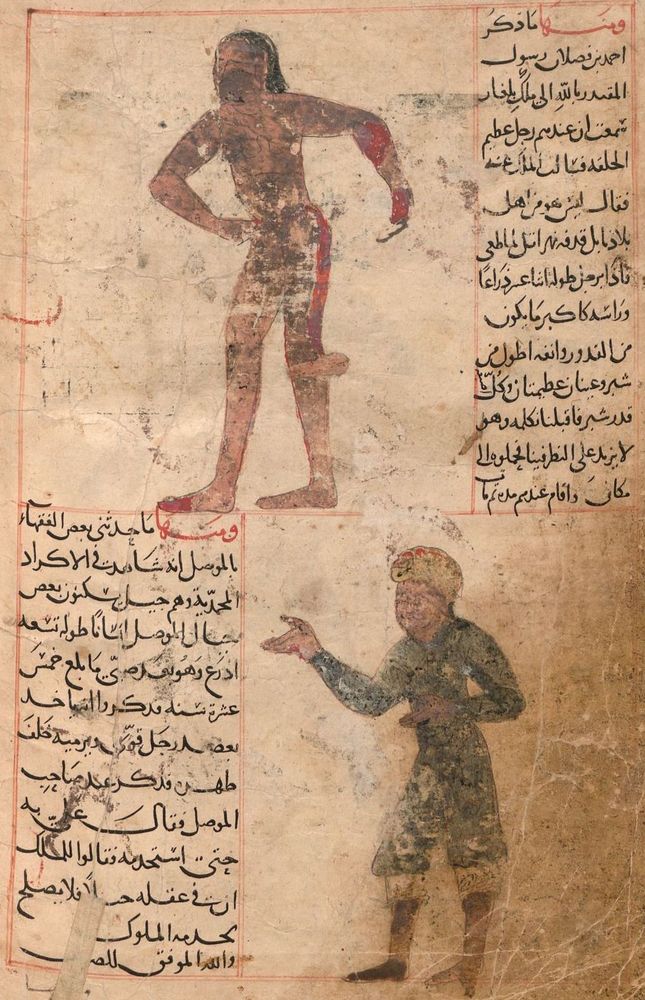 ومنها ما ذكر
احمد بن فضلان رسول
المقتدر بالله الى ملك بلغار
سمعت ان عندهم رجل عظيم
الخلقة فسالت الملك عنه
فقال ليس هو من اهل
بلادنا بل قدفه نهر اتل لما طغى
فاذا برجل طوله اثنا عشر ذراعا
وراسه كاكبر ما يكون
من القدور وانفه اطول من
شبر وعينان عظيمتان وكل
قدر شبر فاقبلنا نكلمه وهو
لا يزيد على النظر فينا فحملوه الى
مكان واقام عندهم مدة ثم مات
ومنها ما حدثني بعض الفقهاء
بالموصل انه شاهد في الاكراد
المحمدية وهم جيل يسكنون بعض
جبال الموصل انسانا طوله تسعة
اذرع وهو بعد صبي ما بلغ خمس
عشرة سنة وذكروا انه ياخذ
بعضد رجل قوي ويرميه خلف
ظهره فذكر عند صاحب
الموصل وقال علي به
حتى استخدمه فقالوا للملك
ان في عقله خبلا فلا يصلح
لخدمة الملوك
والله الموفق